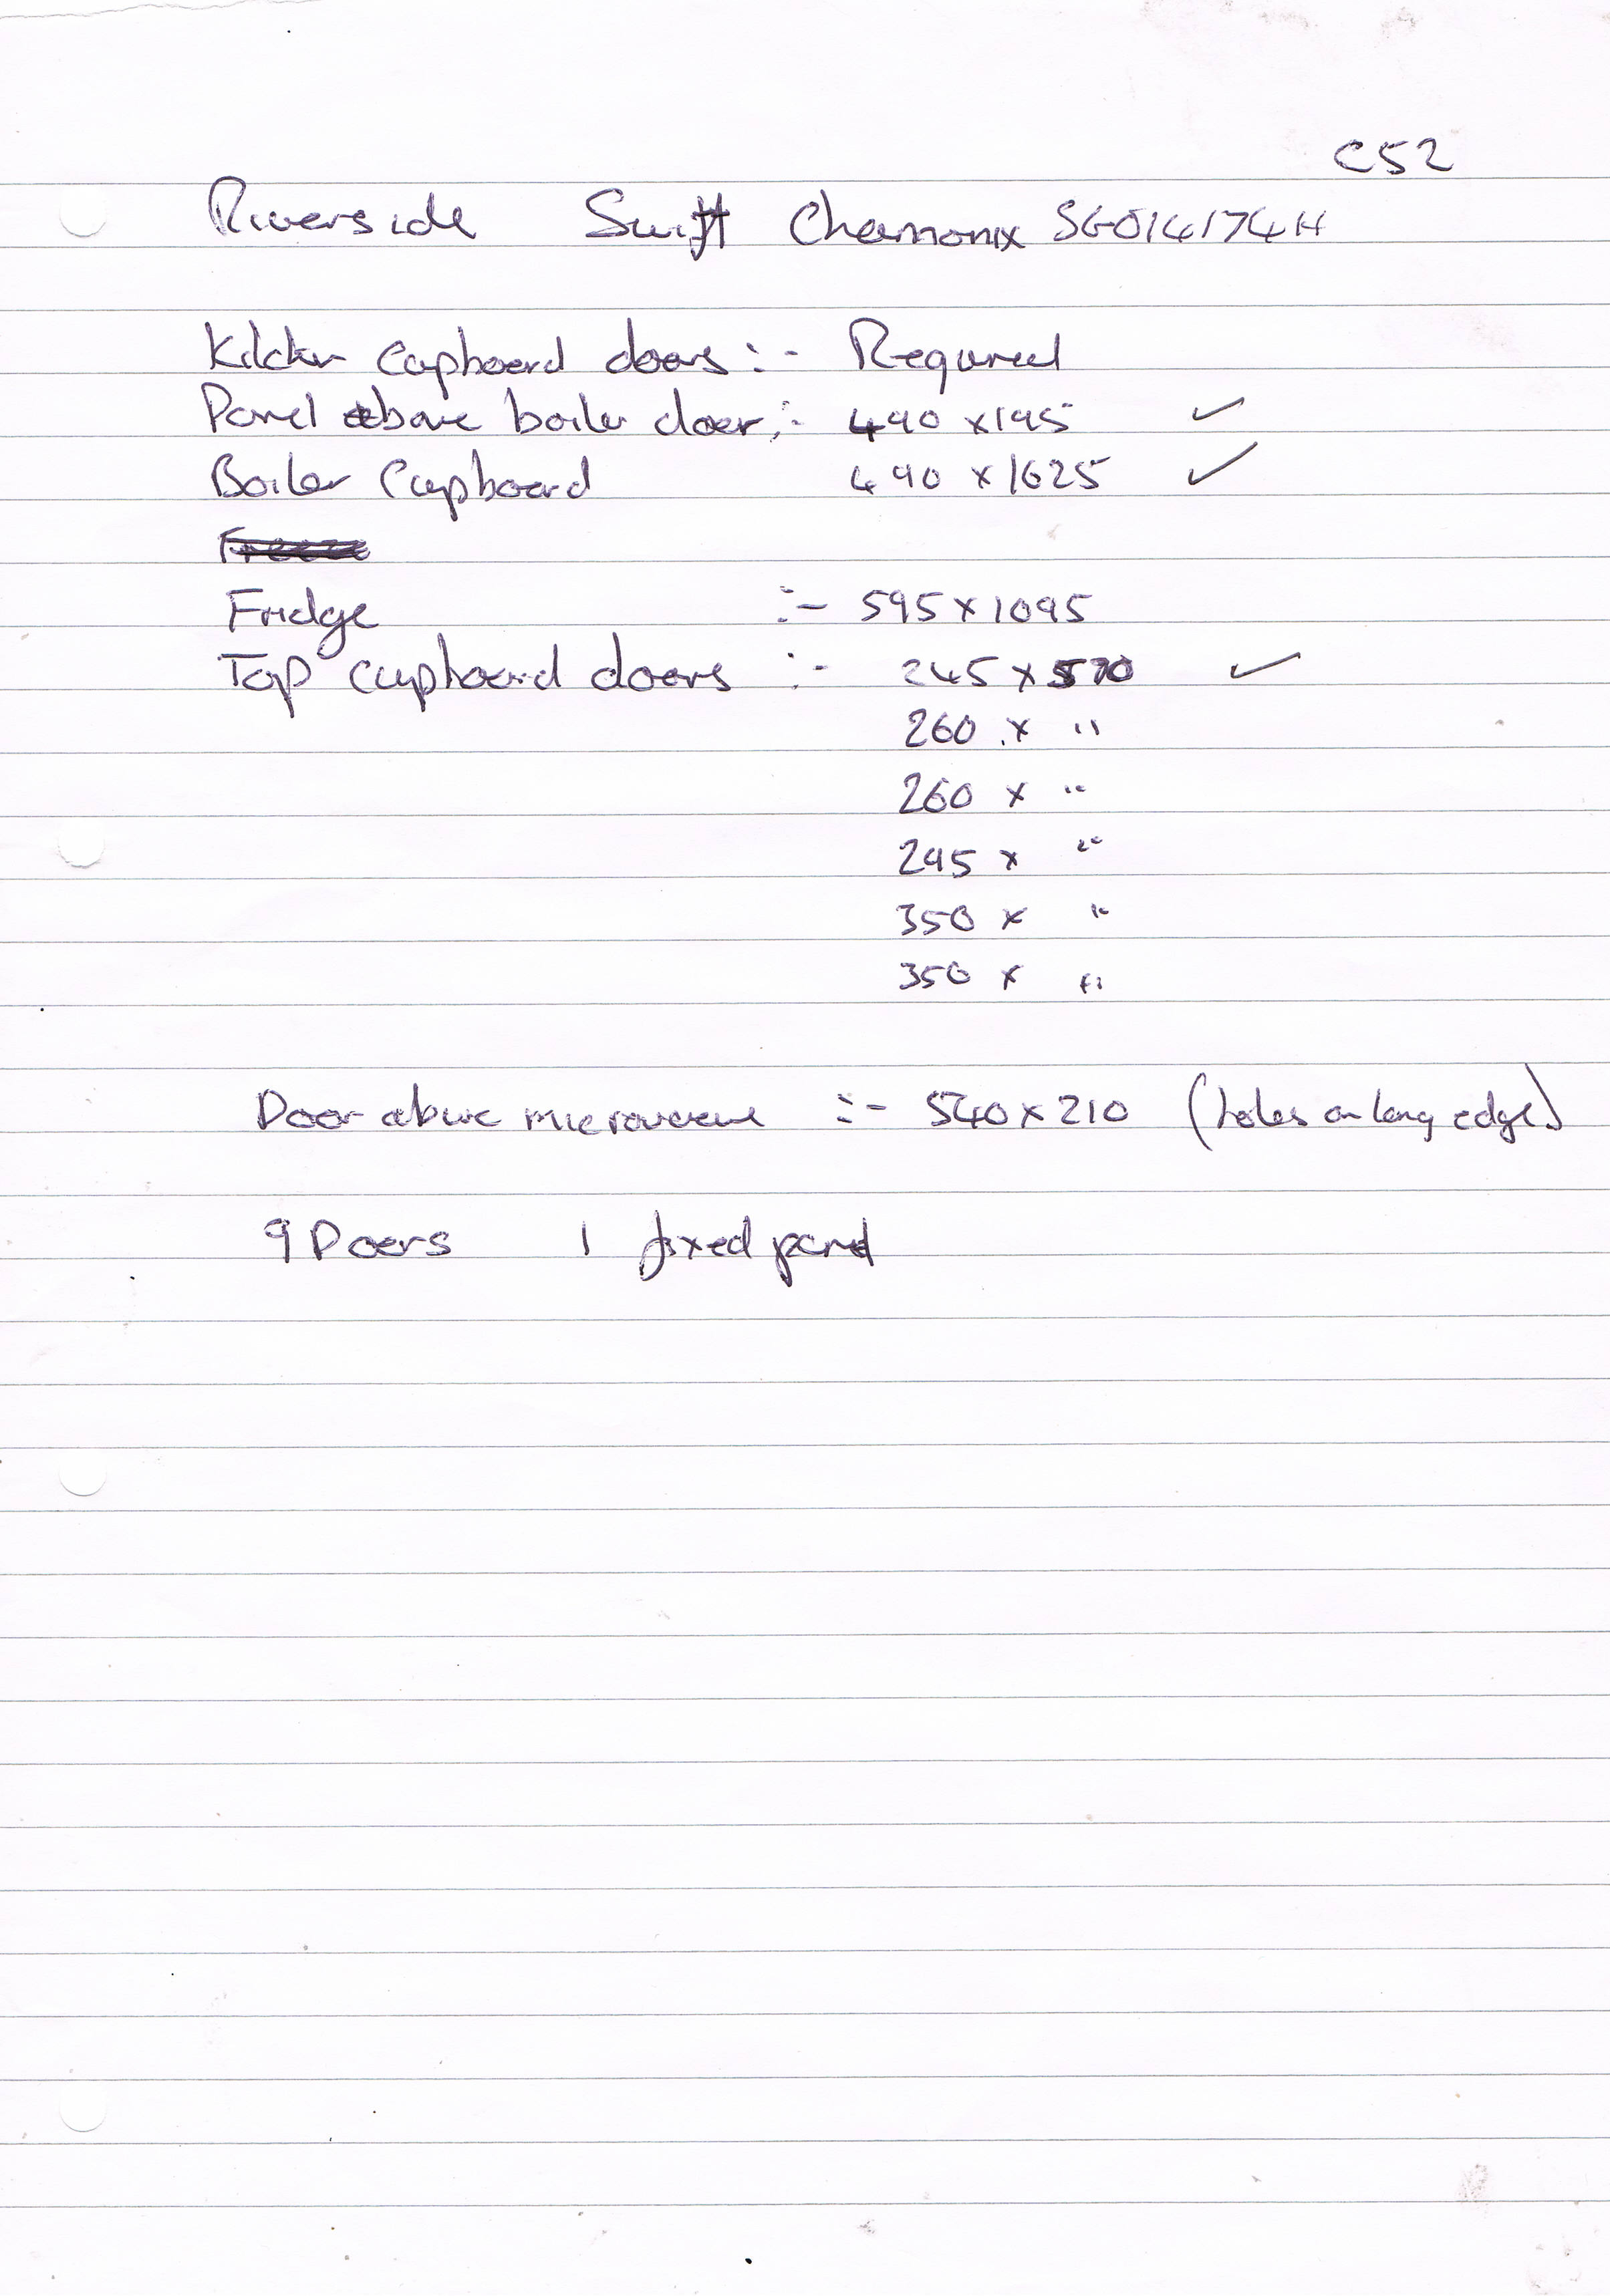 C52
Riverside Swift Chamonix SG014174H
Kitchen Cupboard doors :- Required
Panel above boiler door :- 490 x 195 ✓
Boiler Cupboard 490 x 1625 ✓
Fridge :- 595 x 1095
Top cupboard doors :- 245 x 570 ✓
260 x "
260 x "
295 x "
350 x "
350 x "
Door above microwave :- 540 x 210 (holes on long edge)
9 Doors 1 fixed panel